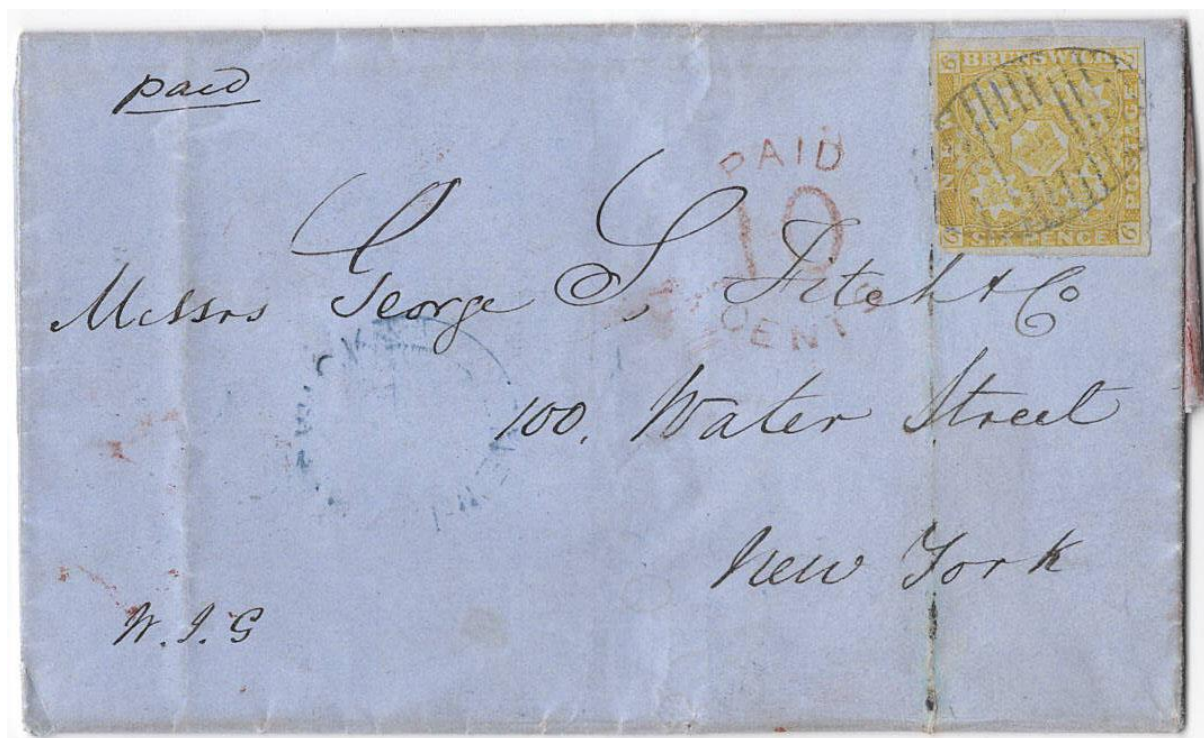 paid
BRUNSWICK
NEW
POSTAGE
SIX PENCE
6 6 6 6
PAID
10
CENTS
Messrs George S. Fitch & Co
100, Water Street
New York
W.J.G